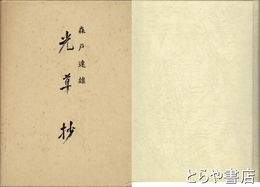 森戸達雄
光草抄
とらや書店